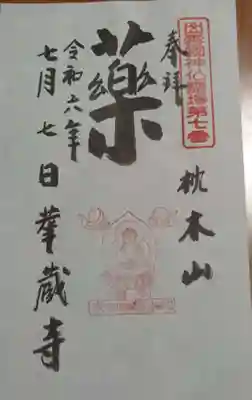 出雲國神仏霊場第七番
奉拝
枕木山
薬
令和六年
七月七日
華蔵寺